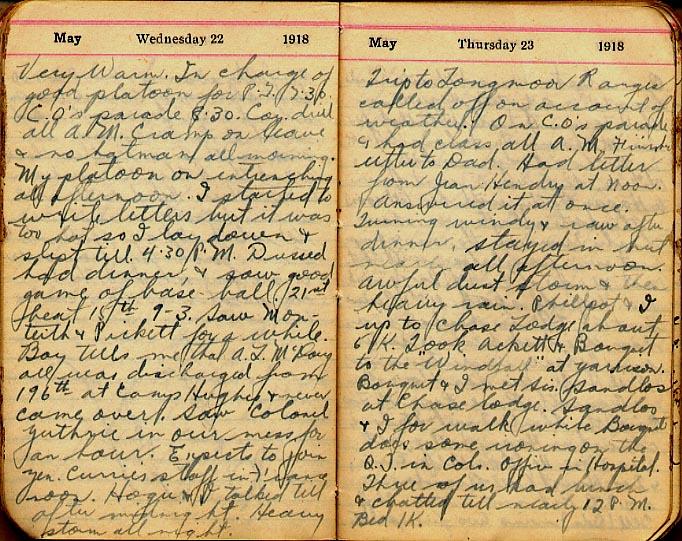 May Wednesday 22 1918
Very Warm. In charge of
good platoon for P.T. 7.30.
C.O's parade 8.30. Coy. drill
all A.M. Cramp on leave
& no batman all morning.
My platoon on intrenching
all afternoon. I started to
write letters but it was
too hot so I lay down &
slept till 4.30 P.M. Dressed
had dinner, & saw good
game of base ball. 21st
beat 19th 9-3. Saw Mon-
teith & Pickett for a while.
Bay tells me that A.L. McDoug
all was discharged from
196th at Camp Hughes & never
came over. Saw Colonel
Guthrie in our mess for
an hour. Expects to join
Gen. Curries staff in France
soon. Hogue & I talked till
after midnight. Heavy
storm all night.
May Thursday 23 1918
Trip to Longmoor Ranges
called off on account of
weather. On C.O's parade
& had class all A.M. Finished
letter to Dad. Had letter
from Jean Hendry at noon.
& Answered it at once.
Turning windy & raw after
dinner, stayed in hut
nearly all afternoon.
Awful dust storm & then
heavy rain. Philpot & I
up to Chase Lodge about
6 K. Took Ackett & Bouquet
to the "Windfall" at garrison.
Bouquet & I met Sis. Sandlos
at Chase lodge. Sandlos
& I for walk while Bouquet
does some ironing on the
Q.T. in Cols. Office in Hospital.
Three of us had lunch
& chatted till nearly 12 P.M.
Bed 1K.